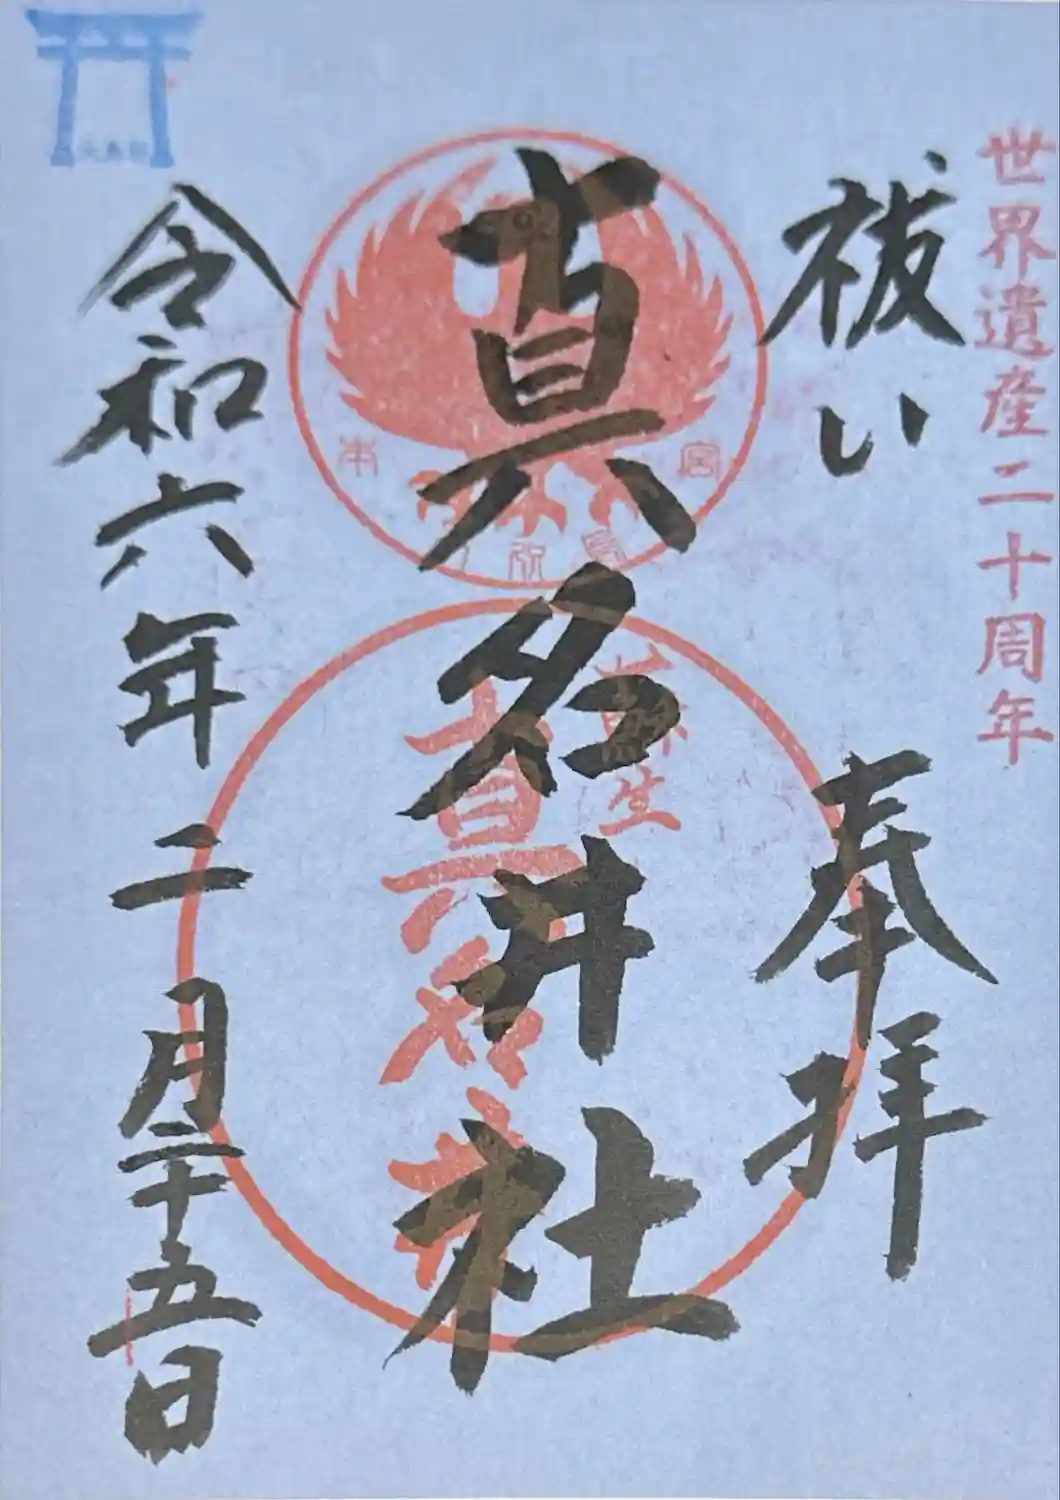 世界遺産二十周年
祓い
奉拝
真名井社
蘇生
真名井
令和六年二月二十五日